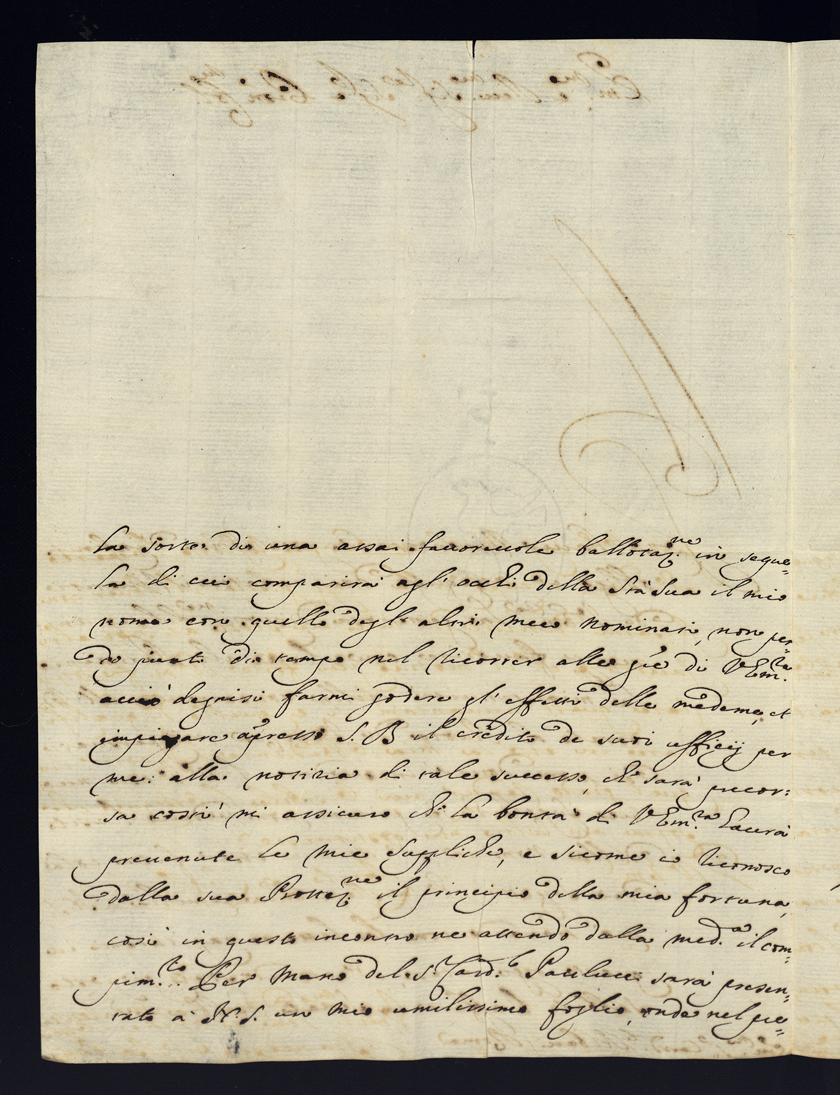 La sorte di una assai fauoreuole ballotaz.ne in seque=
la di cui comparirà agl' occhi della Stà Sua il mio
nome con quello degl' altri meco nominati, non per=
do punto di tempo nel ricorrer alle gr̃e di VEm.za
acciò degnisi farmi godere gl' effetti delle medeme, et
impiegare apresso S. B. il credito de suoi ufficij per
me: alla notizia di tale successo, ch' sarà precor:
sa costì mi assicuro ch' la bontà di VEm.za hauerà
preuenute le mie suppliche, e sicome io riconosco
dalla sua Protez.ne il principio della mia fortuna,
così in questo incontro ne attendo dalla med.a il com=
pim.to. Per mano del S.r Card.l Paulucci sarà presen=
tato à N. S. un mio umilissimo foglio, onde nel pie=